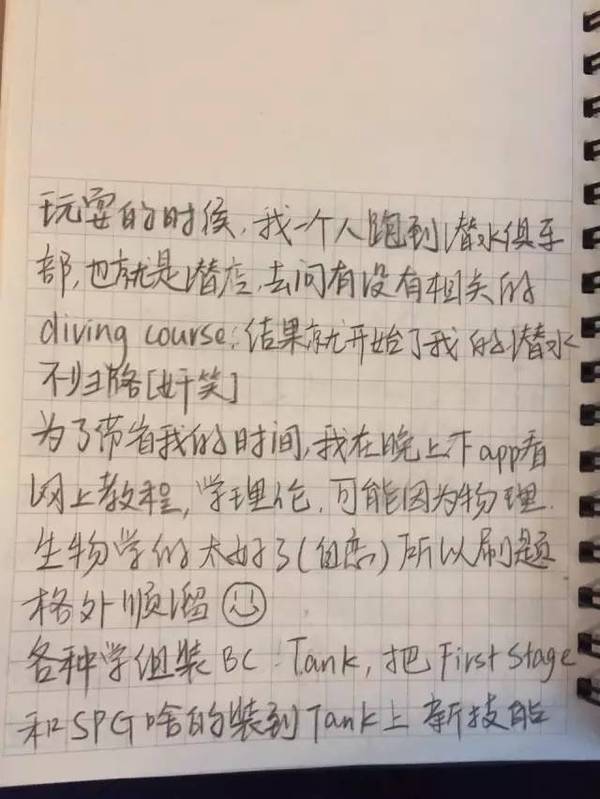 玩耍的时候,我一个人跑到潜水俱乐
部,也就是潜店,去问有没有相关的
diving course,结果就开始了我的潜水
不归路[奸笑]
为了节省我的时间,我在晚上下app看
网上教程,学理论,可能因为物理
生物学的太好了(自恋)所以刷题
格外顺溜
各种学组装BC Tank,把First Stage
和SPG啥的装到Tank上 新技能